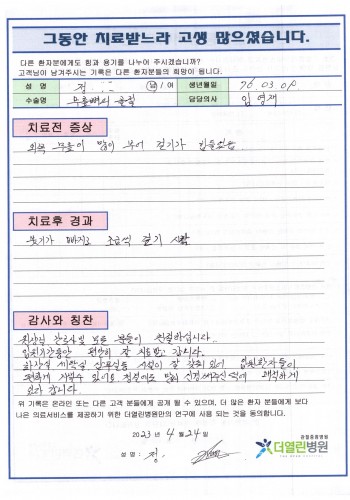 그동안 치료받느라 고생 많으셨습니다.
다른 환자분에게도 힘과 용기를 나누어 주시겠습니까?
고객님이 남겨주시는 기록은 다른 환자분들의 희망이 됩니다.
성 명 정 남 / 여 생년월일 76.03.09
수술명 무릎뼈의 골절 담당의사 임영재
치료전 증상
왼쪽 무릎이 많이 부어 걷기가 힘들었음
치료후 경과
붓기가 빠지고 조금씩 걷기 시작
감사와 칭찬
원장님 간호사 및 모든 분들이 친절하십니다.
입원기간동안 편안히 잘 치료받고 갑니다.
화장실 세탁실 샤워실등 시설이 잘 갖춰 있어 입원환자들이
편하게 사용할 수 있어요 청결에도 많이 신경써주신 덕에 쾌적하게
있다 갑니다.
위 기록은 온라인 또는 다른 고객 분들에게 공개 될 수 있으며, 더 많은 환자 분들에게 보다
나은 의료서비스를 제공하기 위한 더열린병원만의 연구에 사용 되는 것을 동의합니다.
2023 년 4 월 24 일
성 명 : 정.
관절중점병원
더열린병원